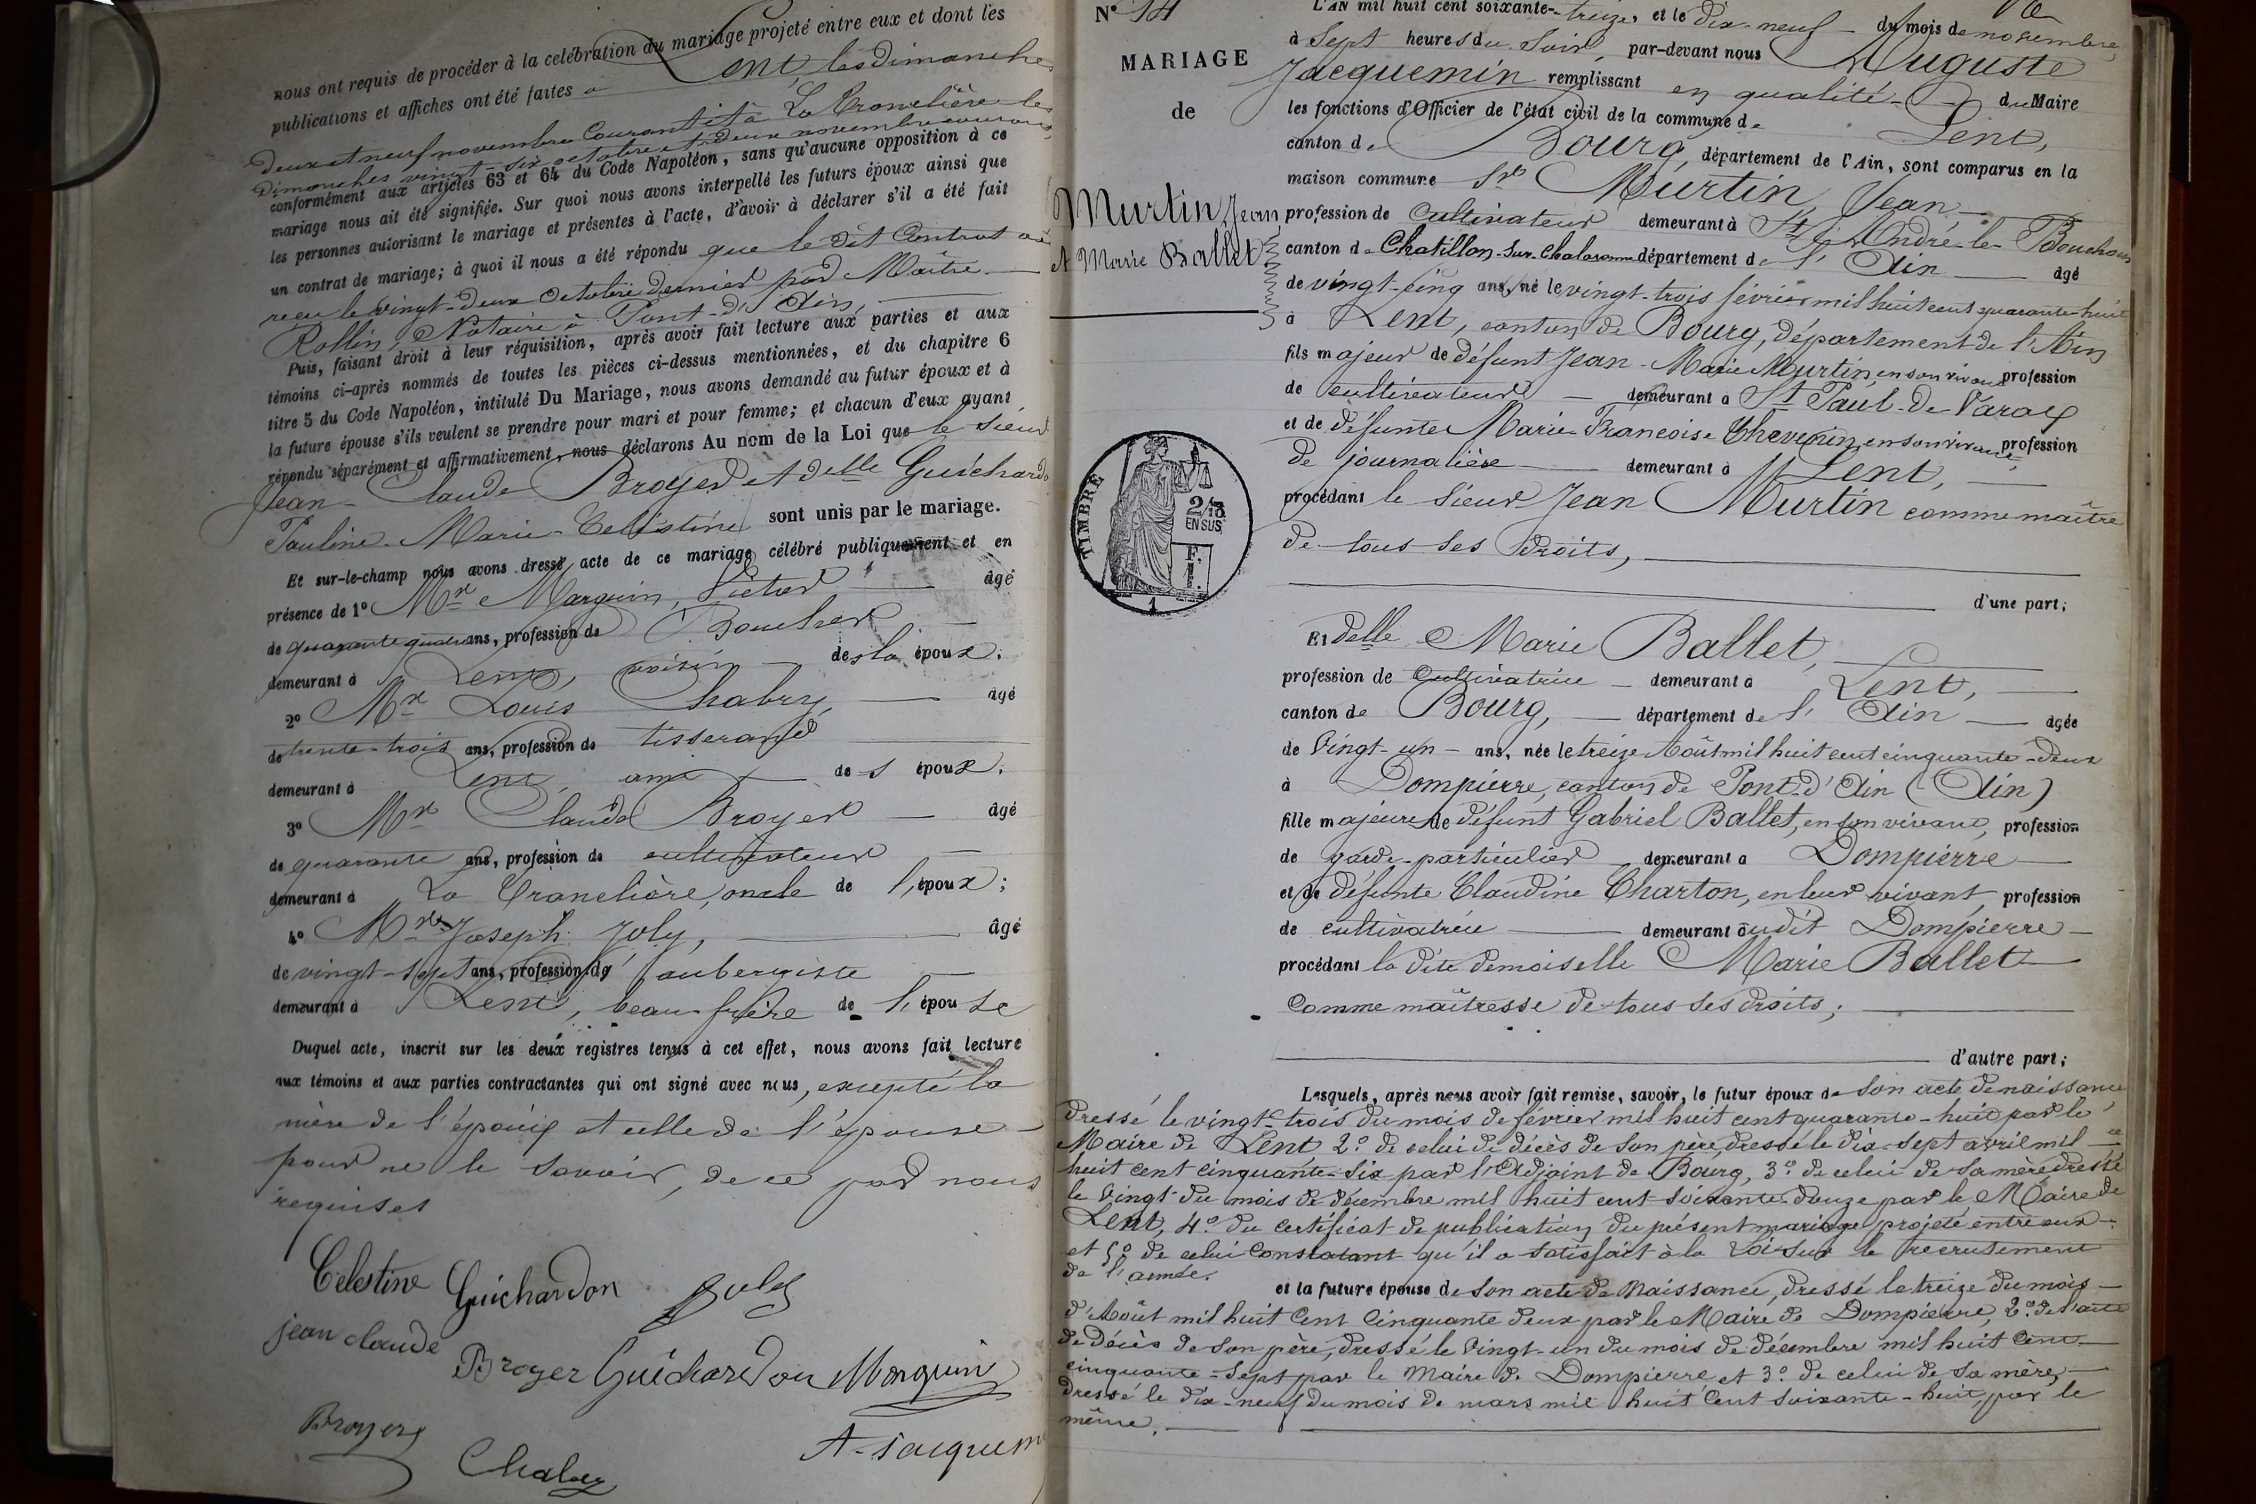 nous ont requis de procéder à la celébration du mariage projeté entre eux et dont les
publications et affiches ont été faites a Lent, les dimanches
deux et neuf novembre courant et à La Tranclière les
dimanches vingt-six octobre et deux novembre courant
conformément aux articles 63 et 64 du Code Napoléon, sans qu'aucune opposition à ce
mariage nous ait été signifiée. Sur quoi nous avons interpellé les futurs époux ainsi que
les personnes autorisant le mariage et présentes à l'acte, d'avoir à déclarer s'il a été fait
un contrat de mariage; à quoi il nous a été répondu que le dit Contrat a été
reçu le vingt-deux Octobre dernier par Maître
Rollin, Notaire à Pont-d'Ain,
Puis, faisant droit à leur réquisition, après avoir fait lecture aux parties et aux
témoins ci-après nommés de toutes les pièces ci-dessus mentionnées, et du chapitre 6
titre 5 du Code Napoléon, intitulé Du Mariage, nous avons demandé au futur époux et à
la future épouse s'ils veulent se prendre pour mari et pour femme; et chacun d'eux ayant
répondu séparément et affirmativement, nous déclarons Au nom de la Loi que le sieur
Jean-Claude Broyer et delle Guichardon
Pauline-Marie-Célestine sont unis par le mariage.
Et sur-le-champ nous avons dressé acte de ce mariage célébré publiquement et en
présence de 1° Mr Marguin, Victor âgé
de quarante quatre ans, profession de Boucher
demeurant à Lent, voisin de la époux.
2° Mr Louis Chabry, âgé
de trente-trois ans, profession de tisserand
demeurant à Lent, ami de s époux.
3° Mr Claude Broyer âgé
de quarante ans, profession de cultivateur
demeurant à La Tranclière, oncle de l'époux;
4° Mr Joseph Joly, âgé
de vingt-sept ans, profession de aubergiste
demeurant à Lent, beau-frère de l'épouse
Duquel acte, inscrit sur les deux registres tenus à cet effet, nous avons fait lecture
aux témoins et aux parties contractantes qui ont signé avec nous, excepté la
mère de l'époux et celle de l'épouse
pour ne le savoir, de ce par nous
requises
Celestine Guichardon Joly
jean claude
Broyer Guichardon Marguin
Broyer
Chabry A. Jacquemin
N° 14
MARIAGE
de
Murtin, Jean,
et Marie Ballet
TIMBRE
2/10
EN SUS
1
L'AN mil huit cent soixante-treize, et le dix-neuf du mois de novembre,
à sept heures du soir, par-devant nous Auguste
Jacquemin remplissant en qualité de Maire
les fonctions d'Officier de l'état civil de la commune de Lent,
canton de Bourg, département de l'Ain, sont comparus en la
maison commune Sr Murtin, Jean
profession de Cultivateur demeurant à St André-le-Bouchoux
canton de Chatillon-sur-Chalaronne département de l'Ain âgé
de vingt-cinq ans, né le vingt-trois février mil huit cent quarante-huit
à Lent, canton de Bourg, département de l'Ain
fils majeur de défunt Jean-Marie Murtin, en son vivant profession
de cultivateur demeurant à St Paul-de-Varax
et de défunte Marie-Françoise Thevenin, en son vivant, profession
de journalière demeurant à Lent,
procédant le sieur Jean Murtin comme maître
de tous ses droits,
d'une part;
Et delle Marie Ballet,
profession de Cultivatrice demeurant à Lent,
canton de Bourg, département de l'Ain âgée
de vingt-un ans, née le treize Août mil huit cent cinquante-deux
à Dompierre, canton de Pont-d'Ain (Ain)
fille majeure de défunt Gabriel Ballet, en son vivant, profession
de garde-particulier demeurant à Dompierre
et de défunte Claudine Charton, en leur vivant, profession
de cultivatrice demeurant audit Dompierre
procédant la dite demoiselle Marie Ballet
Comme maîtresse de tous ses droits;
d'autre part;
Lesquels, après nous avoir fait remise, savoir, le futur époux de son acte de naissance
dressé le vingt-trois du mois de février mil huit cent quarante-huit par le
Maire de Lent, 2° de celui de décès de son père, dressé le dix-sept avril mil
huit cent cinquante-six par l'Adjoint de Bourg, 3° de celui de sa mère dressé
le vingt du mois de décembre mil huit cent soixante-douze par le Maire de
Lent, 4° du certificat de publication du présent mariage projeté entre eux
et 5° de celui constatant qu'il a satisfait à la Loi sur le recrutement
de l'armée.
et la future épouse de son acte de Naissance, dressé le treize du mois
d'Août mil huit Cent Cinquante deux par le Maire de Dompierre, 2° de l'acte
de décès de son père, dressé le Vingt-un du mois de décembre mil huit Cent
cinquante-sept par le Maire de Dompierre et 3° de celui de sa mère,
dressé le dix-neuf du mois de mars mil huit Cent soixante-huit, par le
même.